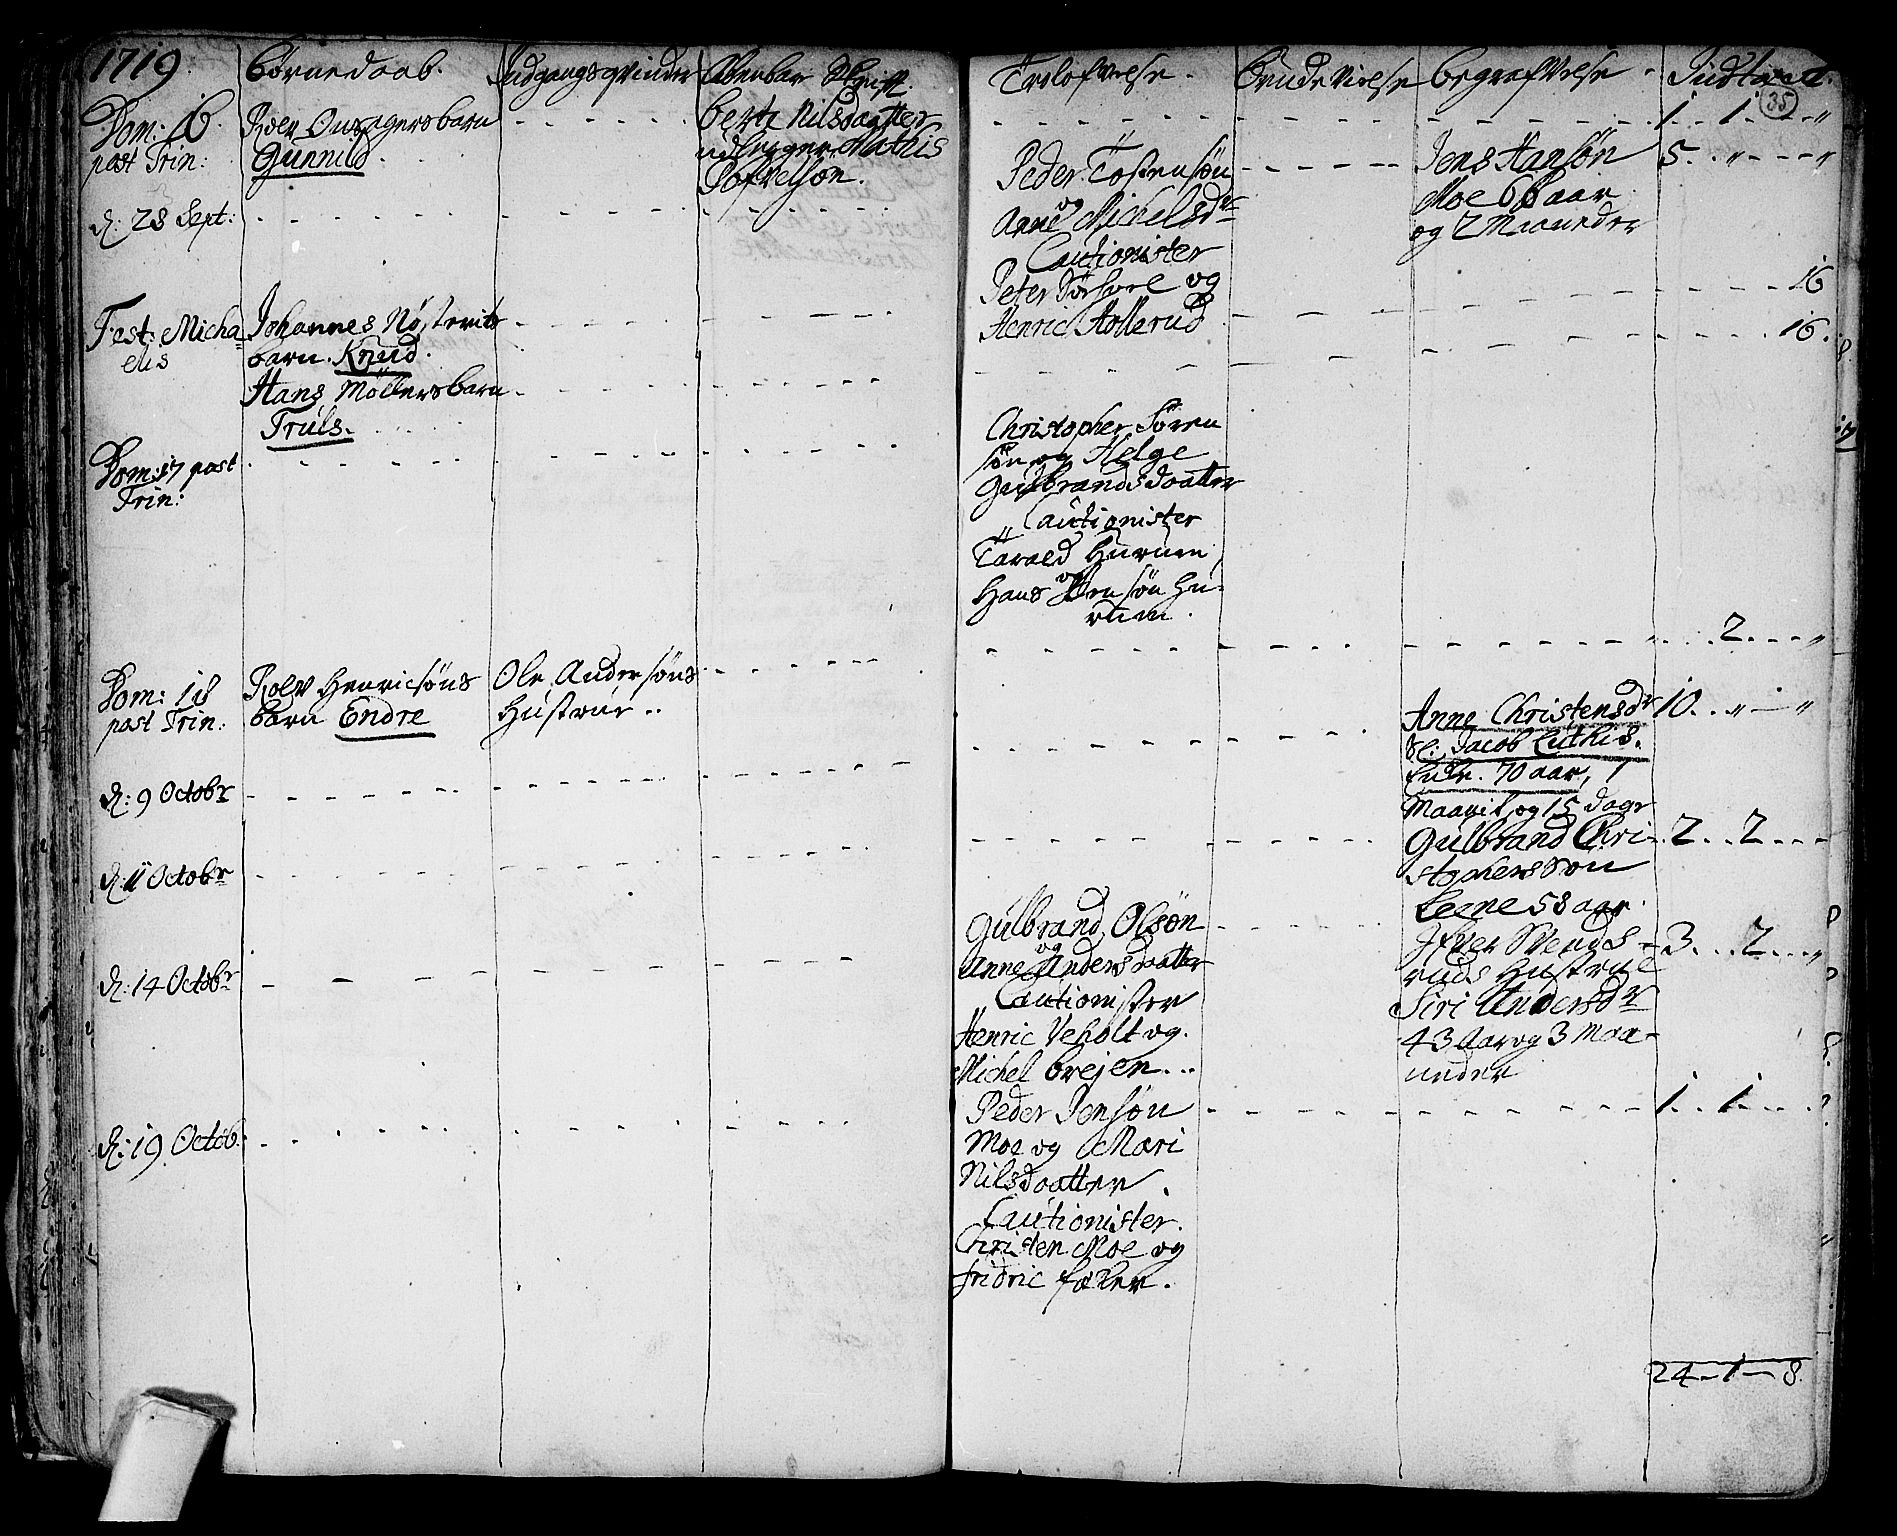 1719. Børnedaab. Indgangsqvinder Aabenbar Skrift. Trolofvelse. Brude Vielse Begrafvelse. Indtract.
35
Dom: 16
post Trin:
Roer Onsagers barn
Gunnild.
Berte Nilsdaatter
udlegger Mathis
1 . . 1 . . "
d: 28 Sept:
Peder Tostensøn
og
Anne Michelsdr
Cautionister
Peter Sørsore og
Henric Hollerud
Jens Hansøn
Moe 68 aar
og 2 Maaneder
5. . " - - - "
Fest: Micha
elis
Johannes Nøsteruds
barn. Knud.
16
Hans Møllers barn
Truls.
16.
Dom: 17 post
Trin:
Christopher Søren
søn og Helge
Gulbrandsdaatter
Cautionister
Tarald Hurum
og
Hans Jensøn Hu-
rum.
2 - - - "
Dom: 18
post Trin:
Rolv Henricsøns
barn Endre
Ole Andersøns
Hustrue . .
d: 9 Octobr
Anne Christensdr
Sl: Jacob Luthis.
Enke. 70 aar, 1
Maanet og 15 dage
10. . " - "
d: 11 Octobr
Gulbrand Chri-
stophersson
Leene 58 aar.
2 . . 2 - - -
d: 14 Octobr
Gulbrand Olsøn
og
Anne Andersdaatter
Cautionister
Henric Veholt og.
Michel Brejen . . .
Ifver Svends-
ruds Hustrue
Siri Andersdr
43 Aar og 3 Maa-
neder
3 . . . 2 . . . "
d: 19 Octob:
Peder Jensøn
Moe og Mari
Nilsdaatter.
Cautionister.
Christen Moe og
fridric
1 . . 1 . . .
24 - 1 - 8.